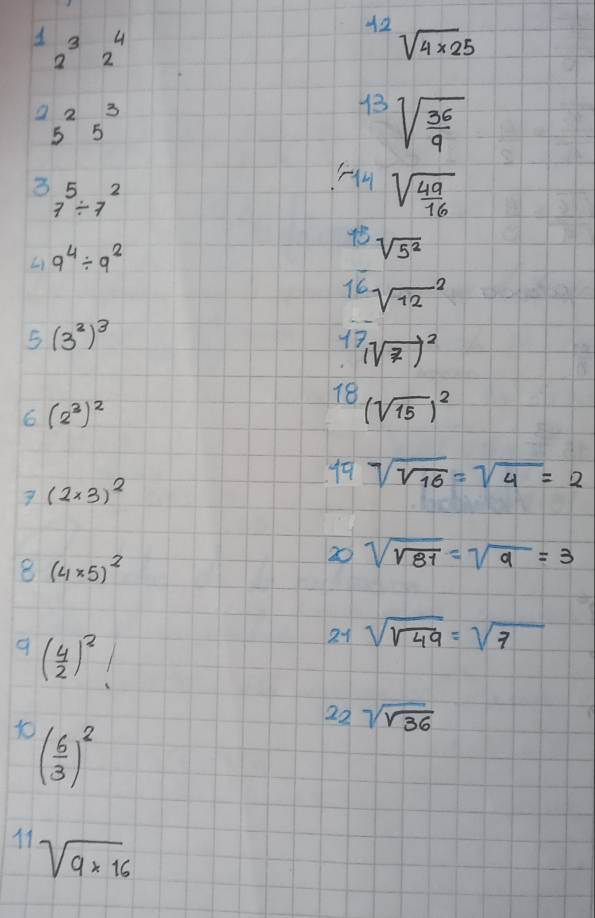 1 2³ 2⁴
2 5² 5³
3 7⁵ ÷ 7²
4 9⁴ ÷ 9²
5 (3²)³
6 (2³)²
7 (2×3)²
8 (4×5)²
9 (4/2)²
10 (6/3)²
11 √(9×16)
12 √(4×25)
13 √(36/9)
14 √(49/16)
15 √(5²)
16 √12²
17 (√7)²
18 (√15)²
19 √√16 = √4 = 2
20 √√81 = √9 = 3
21 √√49 = √7
22 √√36